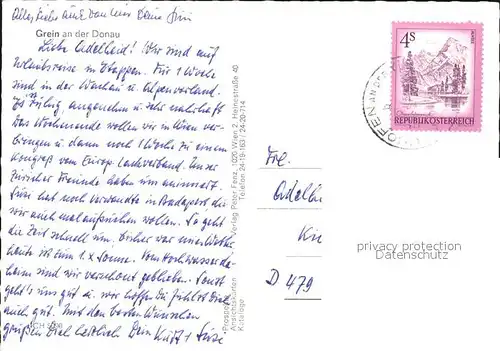 Alles Liebe auch von mir Deine Susi
Grein an der Donau
Liebe Adelheid! Wir sind auf
Urlaubsreise in Etappen. Für 1 Woche
sind in der Wachau u. Alpenvorland.
Es ruhig, angenehm u. sehr nahrhaft
Das Wochenende wollen wir in Wien ver-
bringen u. dann noch 1 Woche zu einem
Kongreß vom Europ.
Züricher Freunde haben uns animiert.
Susi hat noch Verwandte in Budapest die
wir auch mal aufsuchen wollen. So geht
die Zeit schnell um. Bisher war wenig
heute ist zum 1.x Sonne. Vom Hochwasser da-
heim sind wir verschont geblieben. Sonst
geht's uns gut u. wir hoffen Du fühlst Dich
auch gut. Mit den besten Wünschen
grüßen Dich herzlich Dein Kurt + Susi
Prospekte
Ansichtskarten
Kataloge
Verlag Peter Fenz, 1020 Wien 2, Heinestraße 40
Telefon 24-19-163 / 24-20-714
4S
REPUBLIK ÖSTERREICH
HOFEN AN DER
Frl.
Adelhe
D 479
privacy protection
Datenschutz